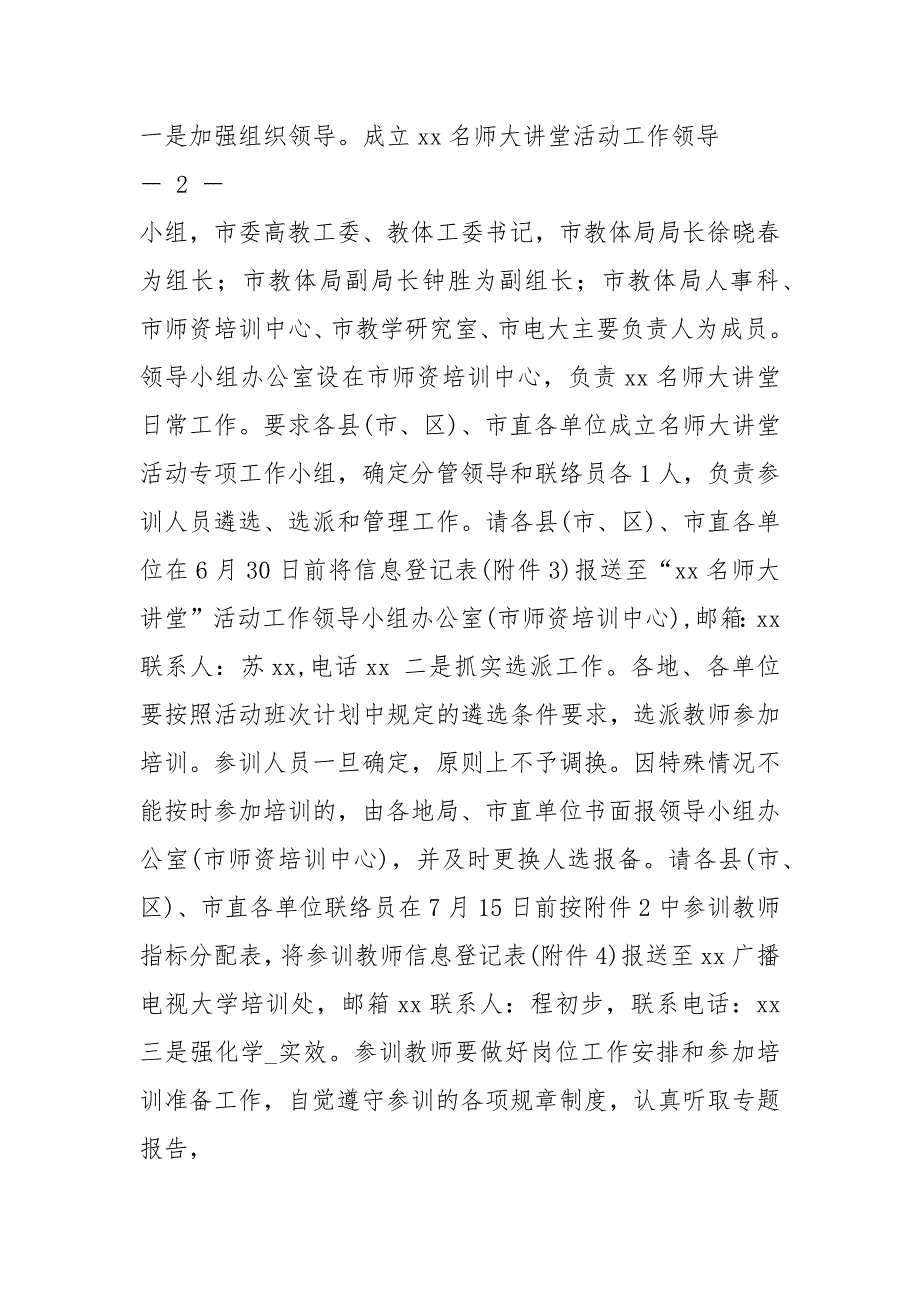 一是加强组织领导。成立 xx 名师大讲堂活动工作领导
— 2 —
小组，市委高教工委、教体工委书记，市教体局局长徐晓春
为组长；市教体局副局长钟胜为副组长；市教体局人事科、
市师资培训中心、市教学研究室、市电大主要负责人为成员。
领导小组办公室设在市师资培训中心，负责 xx 名师大讲堂
日常工作。要求各县(市、区)、市直各单位成立名师大讲堂
活动专项工作小组，确定分管领导和联络员各 1 人，负责参
训人员遴选、选派和管理工作。请各县(市、区)、市直各单
位在 6 月 30 日前将信息登记表(附件 3)报送至“xx 名师大
讲堂”活动工作领导小组办公室(市师资培训中心),邮箱: xx
联系人：苏 xx,电话 xx 二是抓实选派工作。各地、各单位
要按照活动班次计划中规定的遴选条件要求，选派教师参加
培训。参训人员一旦确定，原则上不予调换。因特殊情况不
能按时参加培训的，由各地局、市直单位书面报领导小组办
公室(市师资培训中心)，并及时更换人选报备。请各县(市、
区)、市直各单位联络员在 7 月 15 日前按附件 2 中参训教师
指标分配表，将参训教师信息登记表(附件 4)报送至 xx 广播
电视大学培训处，邮箱 xx 联系人：程初步，联系电话：xx
三是强化学_实效。参训教师要做好岗位工作安排和参加培
训准备工作，自觉遵守参训的各项规章制度，认真听取专题
报告，